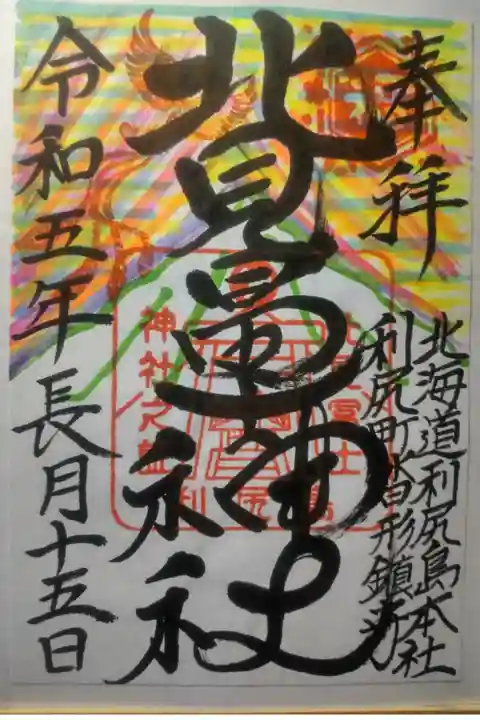 奉拝
北海道利尻島本社
利尻町沓形鎮座
北見冨士神社
神社之証
利尻島
令和五年長月十五日